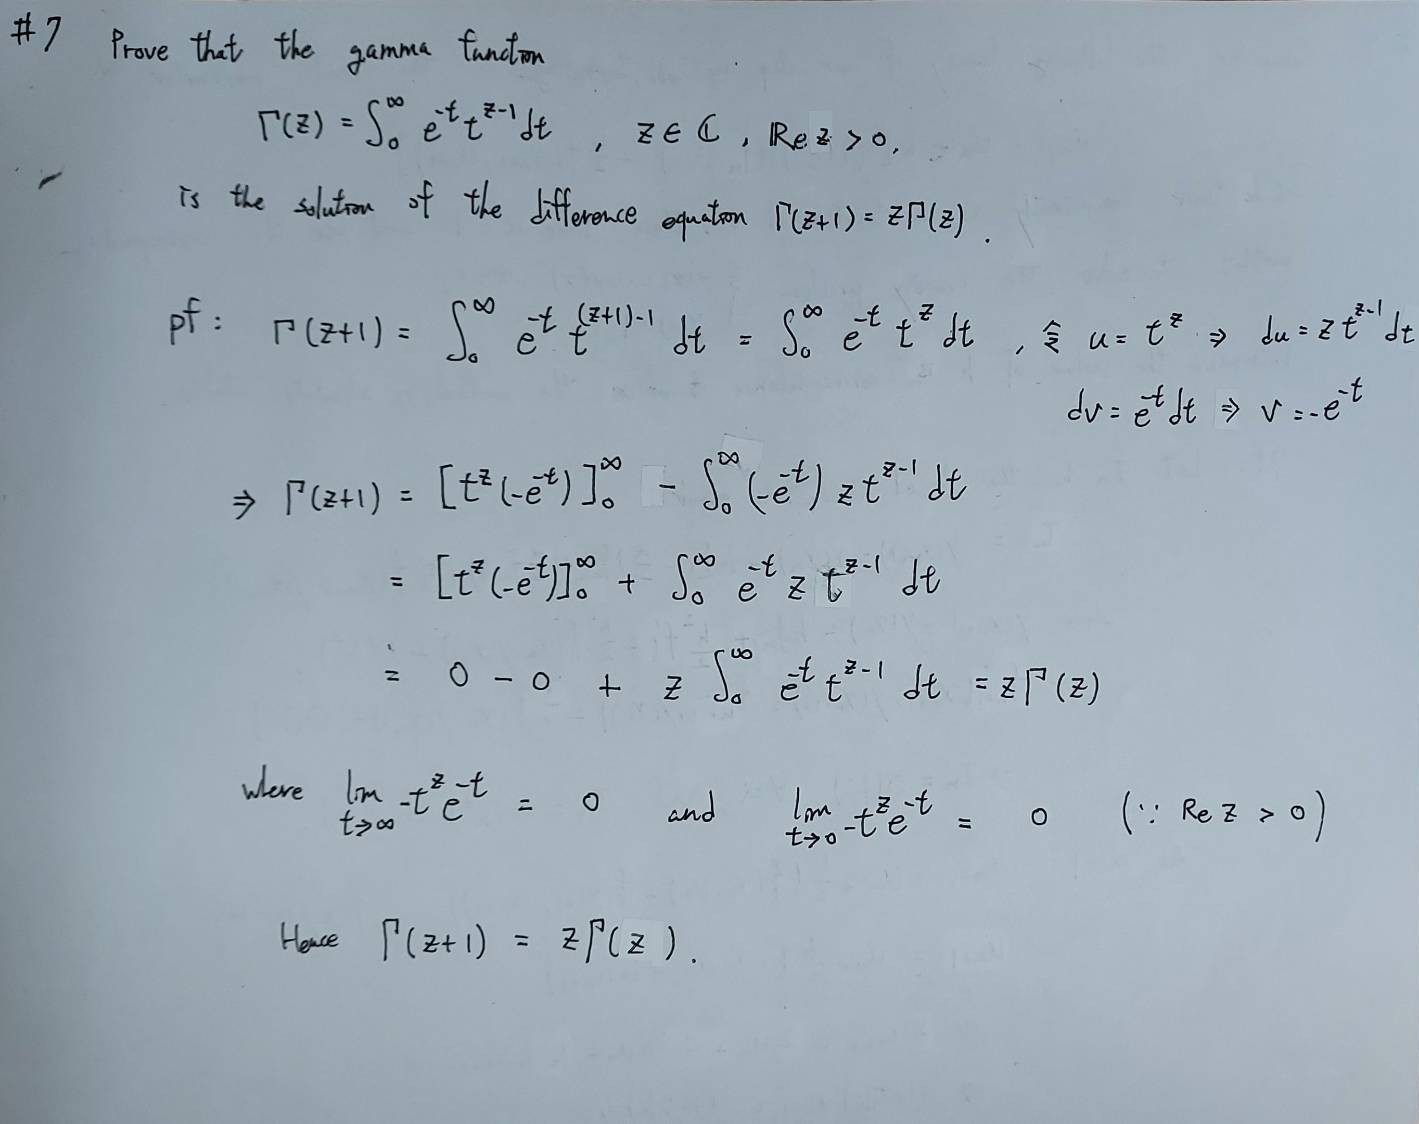 #7 Prove that the gamma function
Γ(z) = ∫₀^∞ e^{-t} t^{z-1} dt , z ∈ ℂ , Re z > 0,
is the solution of the difference equation Γ(z+1) = zΓ(z).
pf : Γ(z+1) = ∫₀^∞ e^{-t} t^{(z+1)-1} dt = ∫₀^∞ e^{-t} t^z dt , 令 u = t^z ⇒ du = z t^{z-1} dt
dv = e^{-t} dt ⇒ v = -e^{-t}
⇒ Γ(z+1) = [t^z (-e^{-t})]₀^∞ - ∫₀^∞ (-e^{-t}) z t^{z-1} dt
= [t^z (-e^{-t})]₀^∞ + ∫₀^∞ e^{-t} z t^{z-1} dt
= 0 - 0 + z ∫₀^∞ e^{-t} t^{z-1} dt = zΓ(z)
where lim_{t→∞} -t^z e^{-t} = 0 and lim_{t→0} -t^z e^{-t} = 0 (∵ Re z > 0)
Hence Γ(z+1) = zΓ(z).